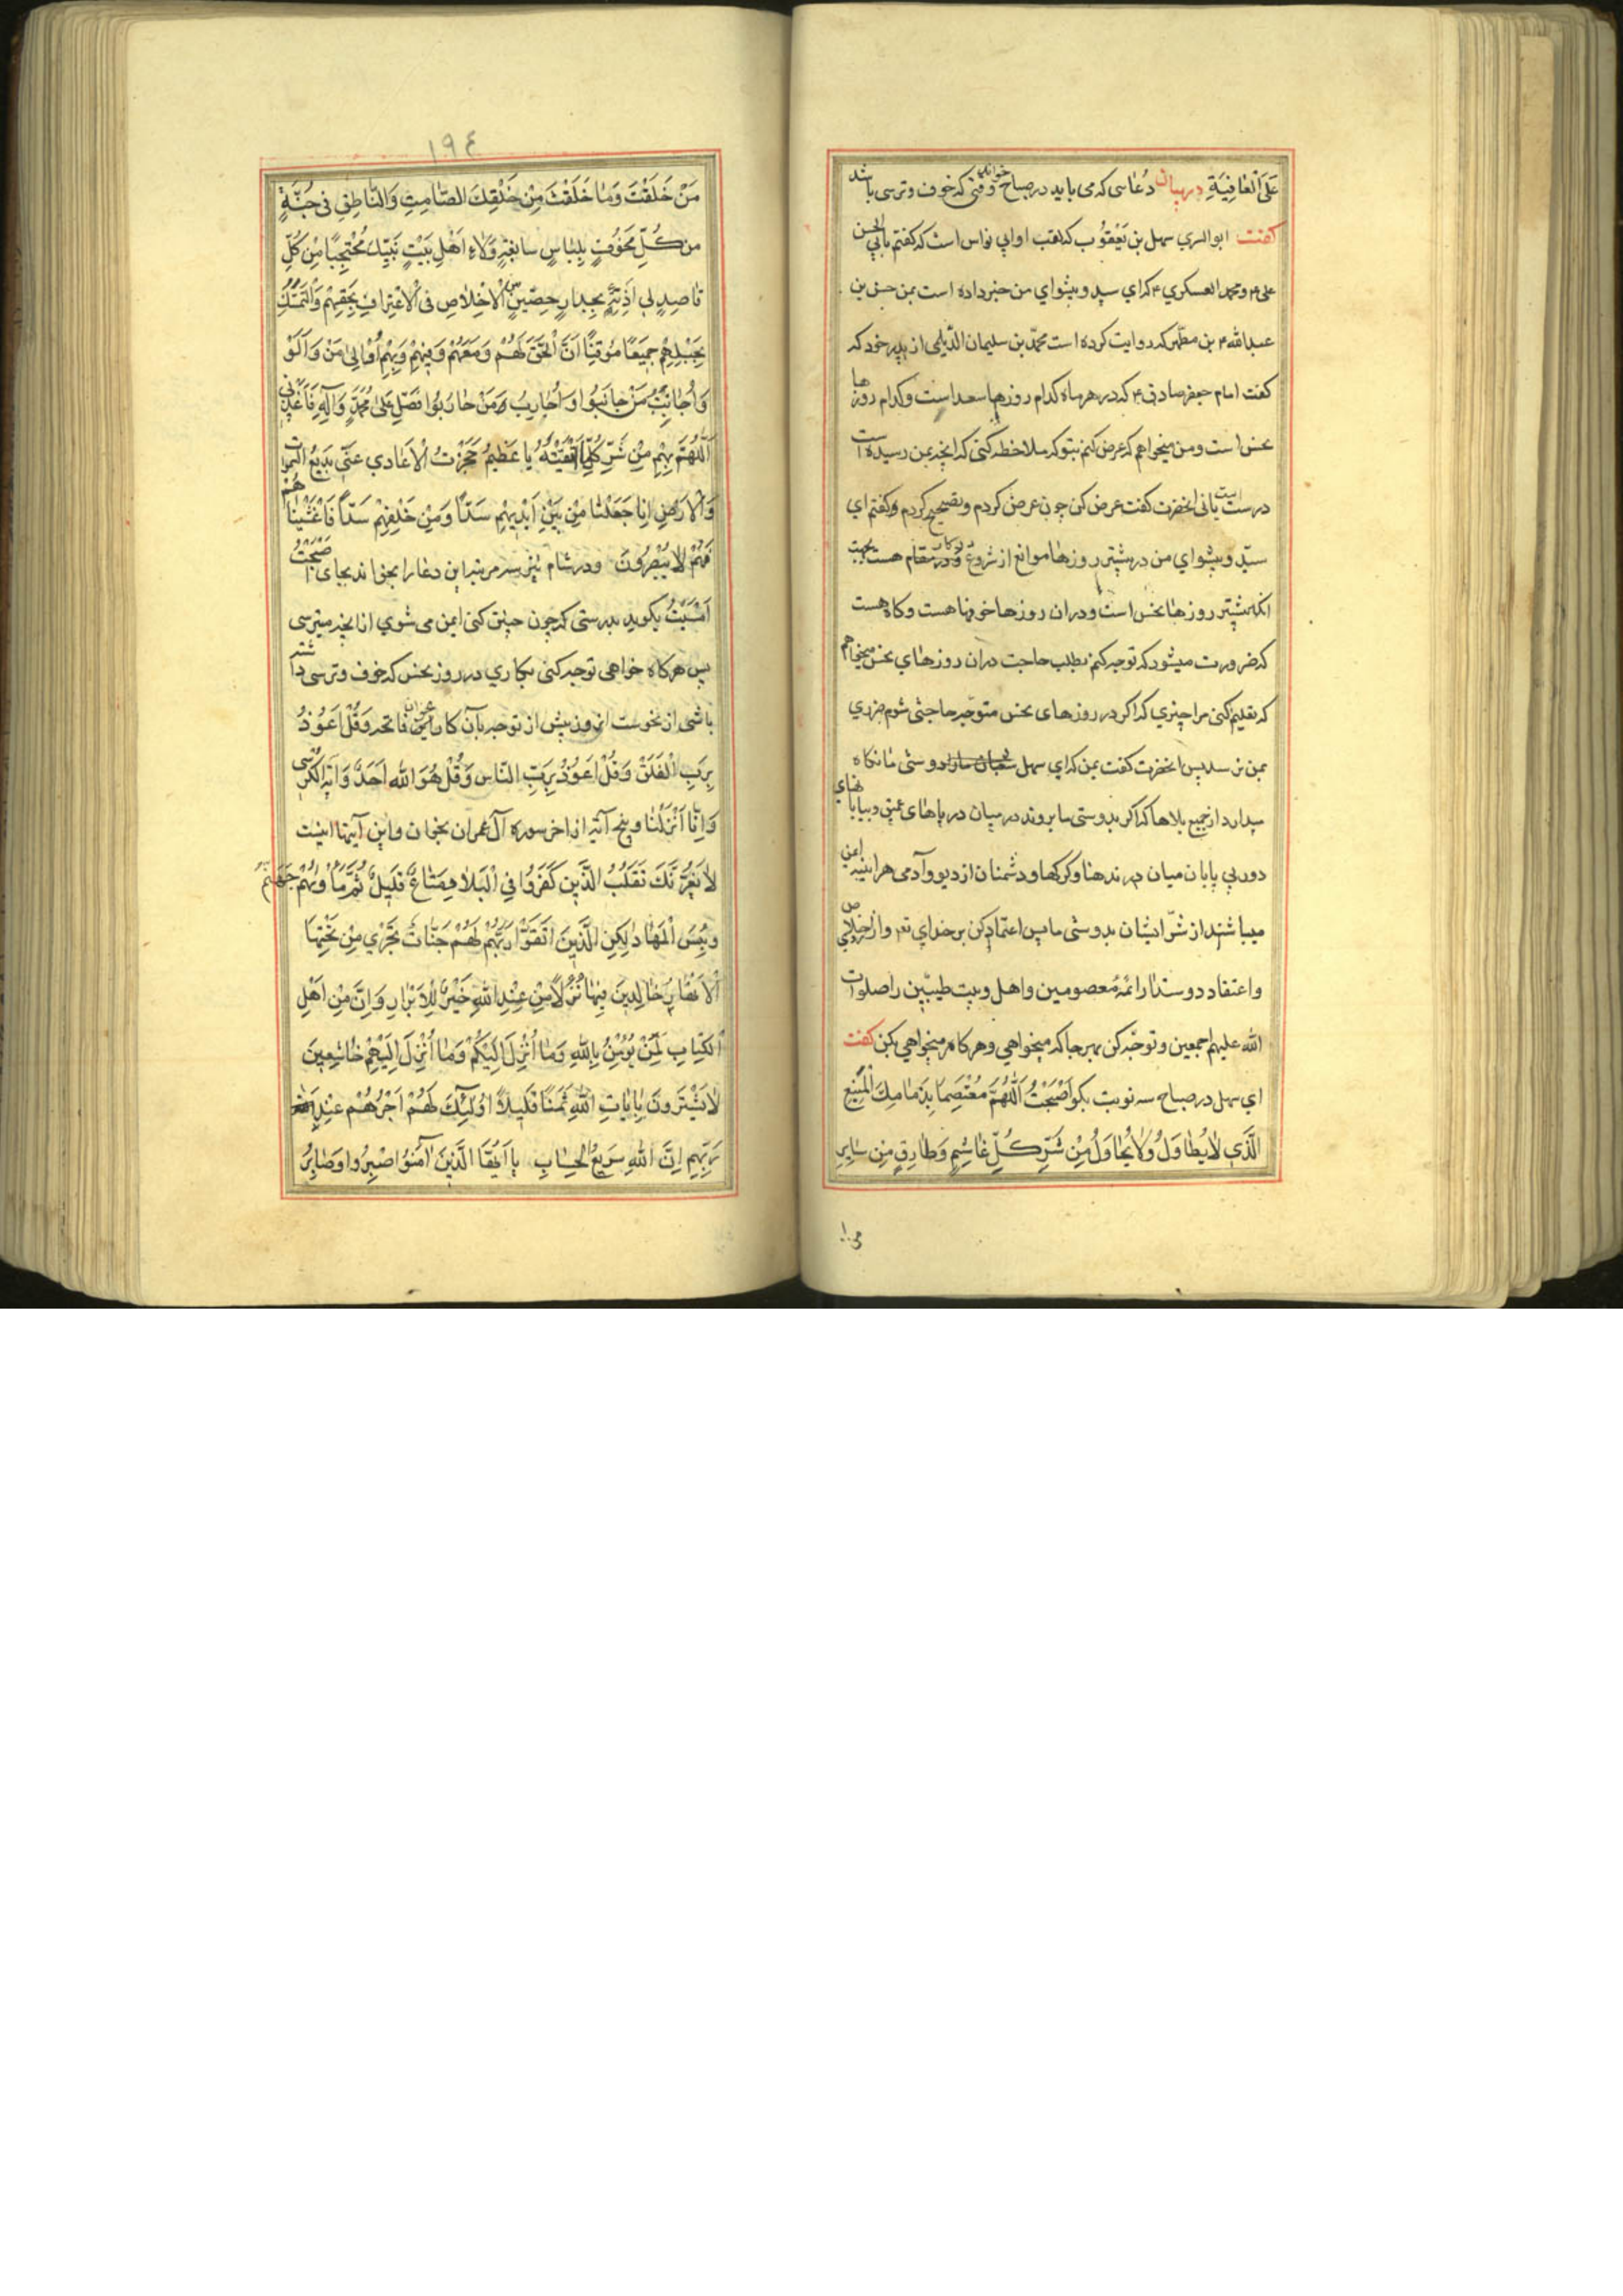 عَلَى الْعَافِيَةِ در بيان دُعاسى كه مى بايد در صباح خواندن وقتى كه خوف وترسى باشد
كفت ابو السري سهل بن يَعْقُوب كه لقب او ابي نواس است كه كفتم بابي الحسن
على بن محمد العسكري ۴ كه اي سيد وپيشواي من خبر داده است بمن حسن بن
عبدالله بن مطهر كه روايت كرده است محمّد بن سليمان الدّيلمى از پدر خود كه
كفت امام جعفر صادق ۴ كه در هر ماه كدام روزها سعد است وكدام روزها
نحس است ومن ميخواهم كه عرض كنم بتو كه ملاحظه كنى كه انچه بمن رسيده است
درست است يانى انحضرت كفت عرض كن چون عرض كردم وتصحيح كردم وكفتم اي
سيّد وپيشواي من در بيشتر روزها موانع از شروع در مقام هست بجهت
انكه بيشتر روزها نحس است ودران روزها خوفها هست وكاه هست
كه ضرورت ميشود كه توجه كنم بطلب حاجت دران روزهاي نحس ميخواهم
كه تعليم كنى مرا چيزي كه اكر در روزهاى نحس متوجّه حاجتى شوم ضرري
بمن نرسد پس انحضرت كفت بمن كه اي سهل دوستى ما نكاه
ميدارد از جميع بلاها كه اكر بدوستى ما بروند در ميان درياهاى عميق وبيابانهاي
دور بي پايان ميان درندها وكركها ودشمنان از ديو وآدمى هراينه ايمن
ميباشند از شرّ ايشان بدوستى ما پس اعتماد كن بر خداي تعـ واز اخلاص
واعتقاد دوستدار ائمّهٔ معصومين واهل وبيت طيبين را صلوات
الله عليهم اجمعين وتوجّه كن بهرجا كه ميخواهي وهر كار ميخواهي بكن كفت
اي سهل در صباح سه نوبت بكو اَصْبَحْتُ اَللّٰهُمَّ مُعْتَصِمًا بِذِمَامِكَ الْمَنِيعِ
الَّذِي لٰايُطٰاوَلُ وَلٰايُحٰاوَلُ مِنْ شَرِّ كُلِّ غٰاشِمٍ وَطٰارِقٍ مِنْ سٰايِرِ
١٩٤
مَنْ خَلَقْتَ وَمٰا خَلَقْتَ مِنْ خَلْقِكَ الصّٰامِتِ وَالنّٰاطِقِ فى جُنَّةٍ
من كُلِّ مَخُوفٍ بِلِبٰاسٍ سابِغَةٍ وَلٰاءِ اَهْلِ بَيْتِ نَبِيِّكَ مُحْتَجِبًا مِنْ كُلِّ
قٰاصِدٍ لِي اَذِيَّةً بِجِدٰارٍ حَصِينِ الْاِخْلٰاصِ فى الْاِعْتِرٰافِ بِحَقِّهِمْ وَالتَّمَسُّكِ
بِحَبْلِهِمْ جَمِيعًا مُوقِنًا اَنَّ الْحَقَّ لَهُمْ وَمَعَهُمْ وَفِيهِمْ وَبِهِمْ اُوٰالِى مَنْ وَالَوْ
وَاُجٰانِبُ مَنْ جٰانَبُوا وَاُحٰارِبُ مَنْ حٰارَبُوا فَصَلِّ عَلىٰ مُحَمَّدٍ وَآلِهِ فَاَعِذْنِى
اَللّٰهُمَّ بِهِمْ مِنْ شَرِّ كُلِّ مٰا اَتَّقِيهِ يا عَظِيمُ حَجَزْتُ الْاَعٰادي عَنّى بَدِيعُ السَّمٰوٰاتِ
وَالْاَرْضِ اِنّا جَعَلْنٰا مِنْ بَيْنِ اَيْدِيهِمْ سَدّاً وَمِنْ خَلْفِهِمْ سَدّاً فَاَغْشَيْنٰاهُمْ
فَهُمْ لٰايُبْصِرُونَ ودر شام نيز سه مرتبه اين دعا را بخواند بجاى اَصْبَحْتُ
اَمْسَيْتُ بكويد بدرستى كه چون چنين كنى ايمن مى شوي از انچه ميترسى
پس هركاه خواهى توجه كنى بكاري در روز نحس كه خوف وترسى داشته
باشى از نحوست انروز پيش از توجه بآن كار بخوان فاتحه وقُلْ اَعُوذُ
بِرَبِّ الْفَلَقْ وَقُلْ اَعُوذُ بِرَبِّ النّاس وَقُلْ هُوَ اللهُ اَحَدٌ وَآيَة الكرْسى
وَاِنّٰا اَنْزَلْنٰا وپنج آيَه از اخر سوره آل عمران بخوان واين آيتها اينست
لٰايَغُرَّنَّكَ تَقَلُّبُ الَّذِينَ كَفَرُوا فِي الْبِلٰادِ مَتٰاعٌ قَلِيلٌ ثُمَّ مَأْوٰيهُمْ جَهَنَّمُ
وَبِئْسَ الْمِهٰادُ لٰكِنِ الَّذِينَ اتَّقَوْا رَبَّهُمْ لَهُمْ جَنّٰاتٌ تَجْري مِنْ تَحْتِهَا
الْاَنْهٰارُ خٰالِدِينَ فِيهٰا نُزُلًا مِنْ عِنْدِ اللّٰهِ خَيْرٌ لِلْاَبْرٰارِ وَاِنَّ مِنْ اَهْلِ
الْكِتٰابِ لَمَنْ يُؤْمِنُ بِاللّٰهِ وَمٰا اُنْزِلَ اِلَيْكُمْ وَمٰا اُنْزِلَ اِلَيْهِمْ خٰاشِعِينَ
لٰايَشْتَرُونَ بِاٰيٰاتِ اللّٰهِ ثَمَنًا قَلِيلًا اُولٰئِكَ لَهُمْ اَجْرُهُمْ عِنْدَ
رَبِّهِمْ اِنَّ اللهَ سَرِيعُ الْحِسٰابِ يٰا اَيُّهَا الَّذِينَ اٰمَنُوا اصْبِرُوا وَصٰابِرُ